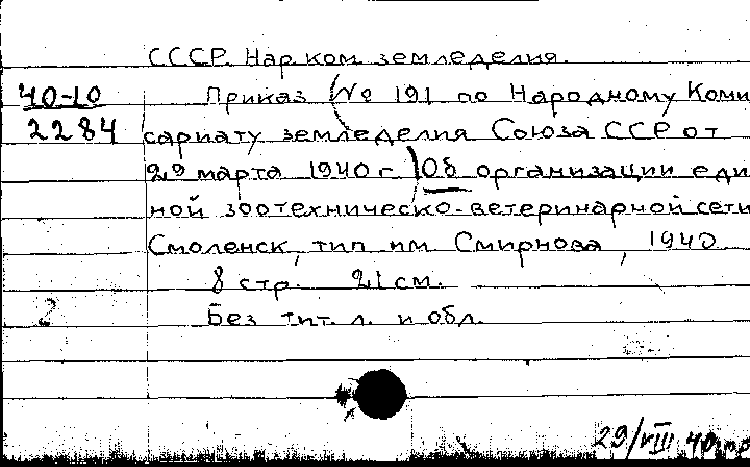 СССР. Нар.ком. земледелия.
40-10
2284
Приказ (№ 191 по Народному Коми
сариату земледелия Союза ССР от
29 марта 1940 г.) Об организации еди
ной зоотехническо-ветеринарной сети
Смоленск, тип им. Смирнова, 1940
8 стр. 21 см.
2
Без тит. л. и обл.
29/VIII 40